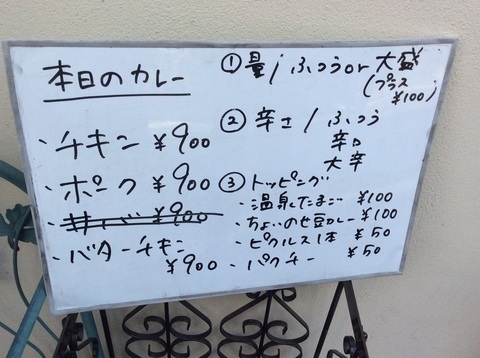 本日のカレー
・チキン ¥900
・ポーク ¥900
¥900
・バターチキン
¥900
① 量/ふつうor大盛
(プラス
¥100)
② 辛さ/ふつう
辛口
大辛
③ トッピング
・温泉たまご ¥100
・ちょいのせ豆カレー ¥100
・ピクルス1本 ¥50
・パクチー ¥50